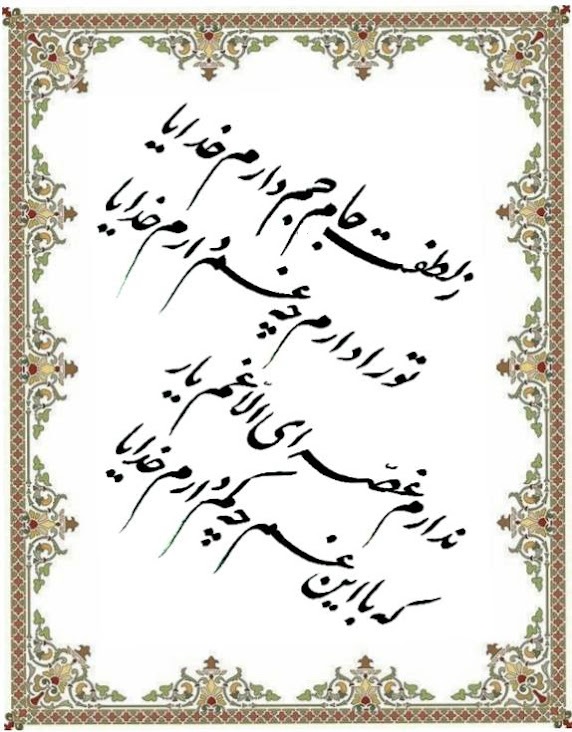 ز لطفت جام جم دارم خدایا
تو را دارم چه غم دارم خدایا
ندارم غصّه ای الّا غم یار
که با این غم چه کم دارم خدایا